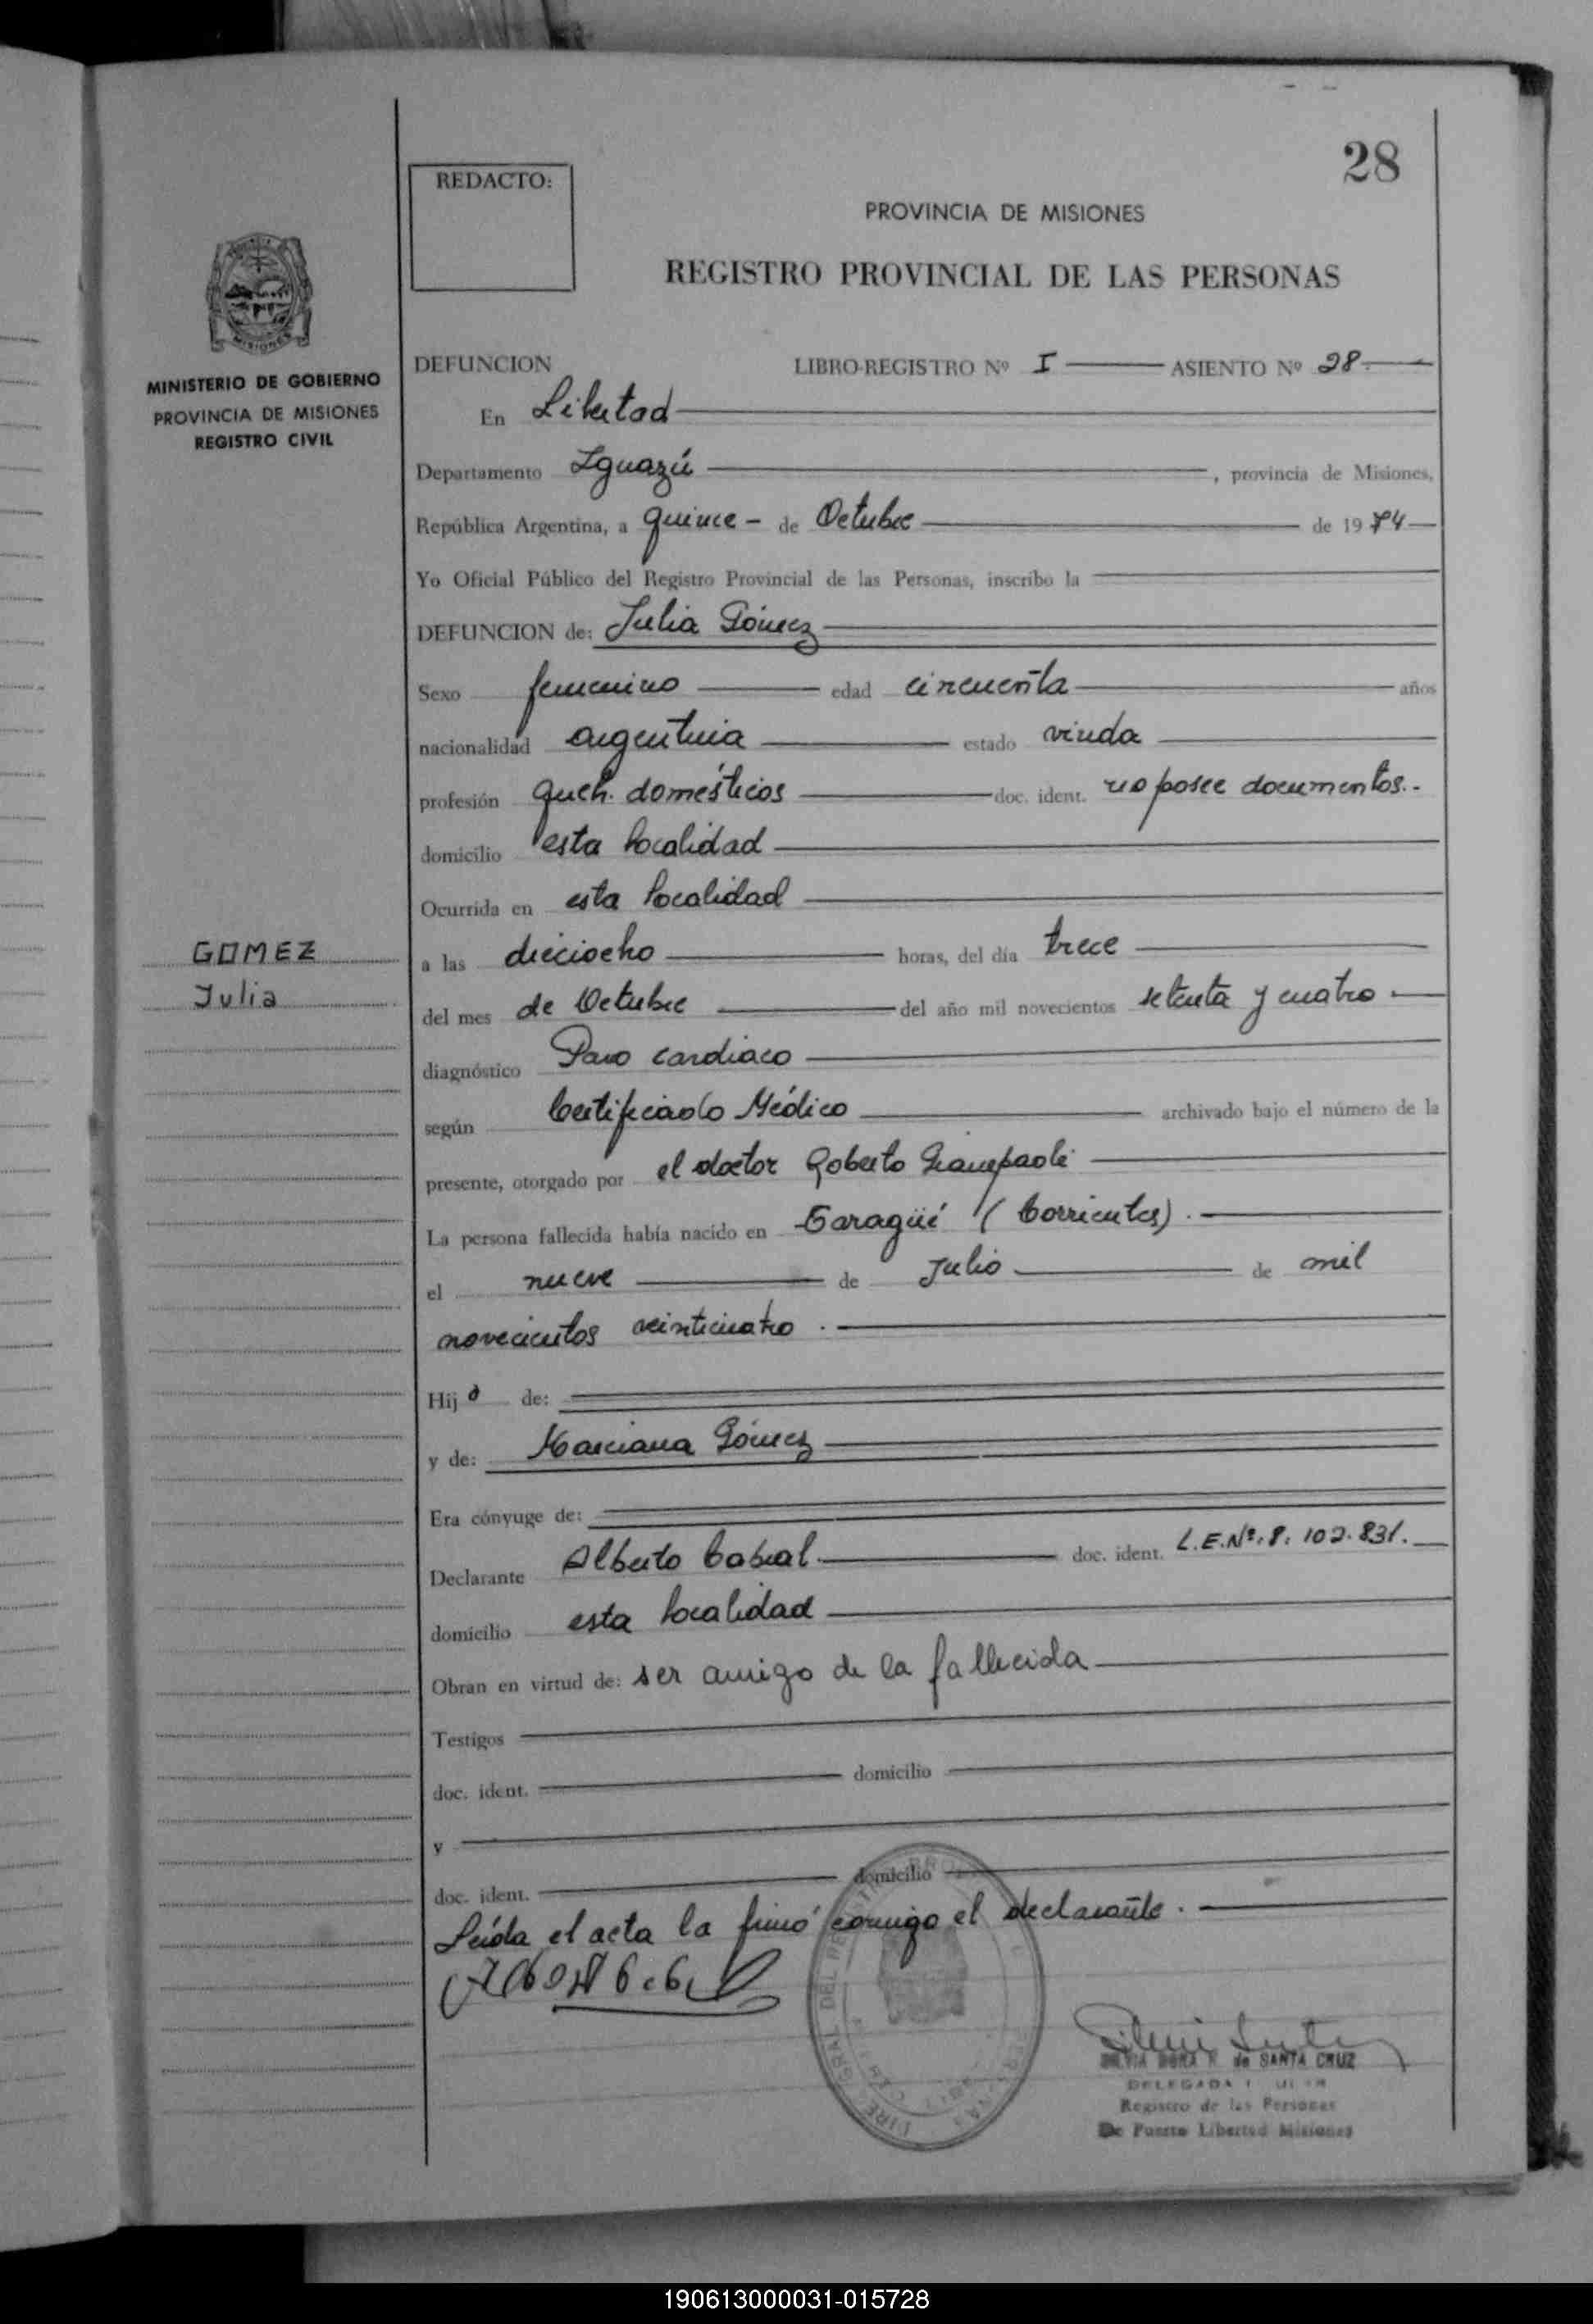 28
REDACTO:
PROVINCIA DE MISIONES
REGISTRO PROVINCIAL DE LAS PERSONAS
MISIONES
MINISTERIO DE GOBIERNO
PROVINCIA DE MISIONES
REGISTRO CIVIL
DEFUNCION LIBRO-REGISTRO Nº I ASIENTO Nº 28.
En Libertad
Departamento Iguazú , provincia de Misiones,
República Argentina, a quince - de Octubre de 1974
Yo Oficial Público del Registro Provincial de las Personas, inscribo la
DEFUNCION de: Julia Gómez
Sexo femenino edad cincuenta años
nacionalidad argentina estado viuda
profesión queh. domésticos doc. ident. no posee documentos.-
domicilio esta localidad
Ocurrida en esta localidad
GOMEZ
Julia
a las dieciocho horas, del día trece
del mes de Octubre del año mil novecientos setenta y cuatro
diagnóstico Paro cardiaco
según Certificado Médico archivado bajo el número de la
presente, otorgado por el doctor Roberto
La persona fallecida había nacido en (Corrientes).
el nueve de Julio de mil
novecientos veinticuatro.
Hij a de:
y de: Marciana Gómez
Era cónyuge de:
Declarante Alberto Cabral. doc. ident. L.E.Nº.8.102.831.
domicilio esta localidad
Obran en virtud de: ser amigo de la fallecida
Testigos
doc. ident. domicilio
y
doc. ident. domicilio
Leída el acta la firmó conmigo el declarante.
de SANTA CRUZ
DELEGADA
Registro de las Personas
De Puerto Libertad Misiones
190613000031-015728